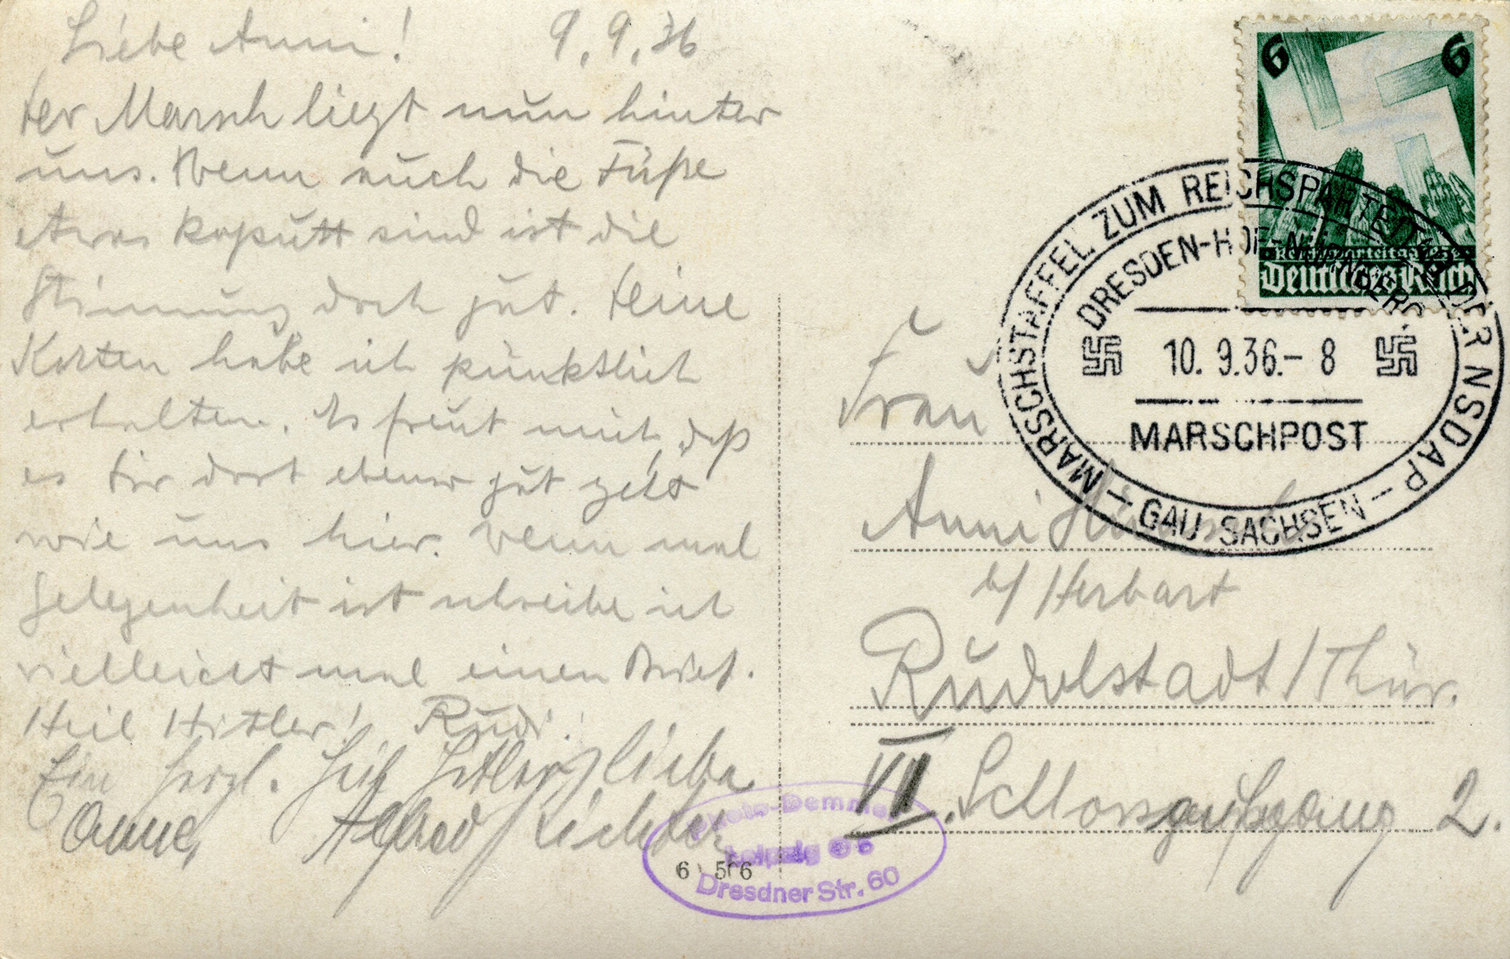 Liebe Anni! 9.9.36
Der Marsch liegt nun hinter
uns. Wenn auch die Füße
etwas kaputt sind ist die
Stimmung doch gut. Deine
Karten habe ich pünktlich
erhalten. Es freut mich, daß
es Dir dort ebenso gut geht
wie uns hier. Wenn mal
Gelegenheit ist schreibe ich
vielleicht mal einen Brief.
Heil Hitler! Rudi.
Ein herzl. Heil Hitler liebe
Anne, Alfred Richter
6 6
Deutsches Reich
MARSCHSTAFFEL ZUM REICHSPARTEITAG DER NSDAP
DRESDEN-HOF-NÜRNBERG
10.9.36.-8
MARSCHPOST
- GAU SACHSEN -
Frau
Anni
b/ Herbart
Rudolstadt/Thür.
VII. Schlossaufgang 2.
Photo-Demmel
Leipzig
6 506
Dresdner Str. 60